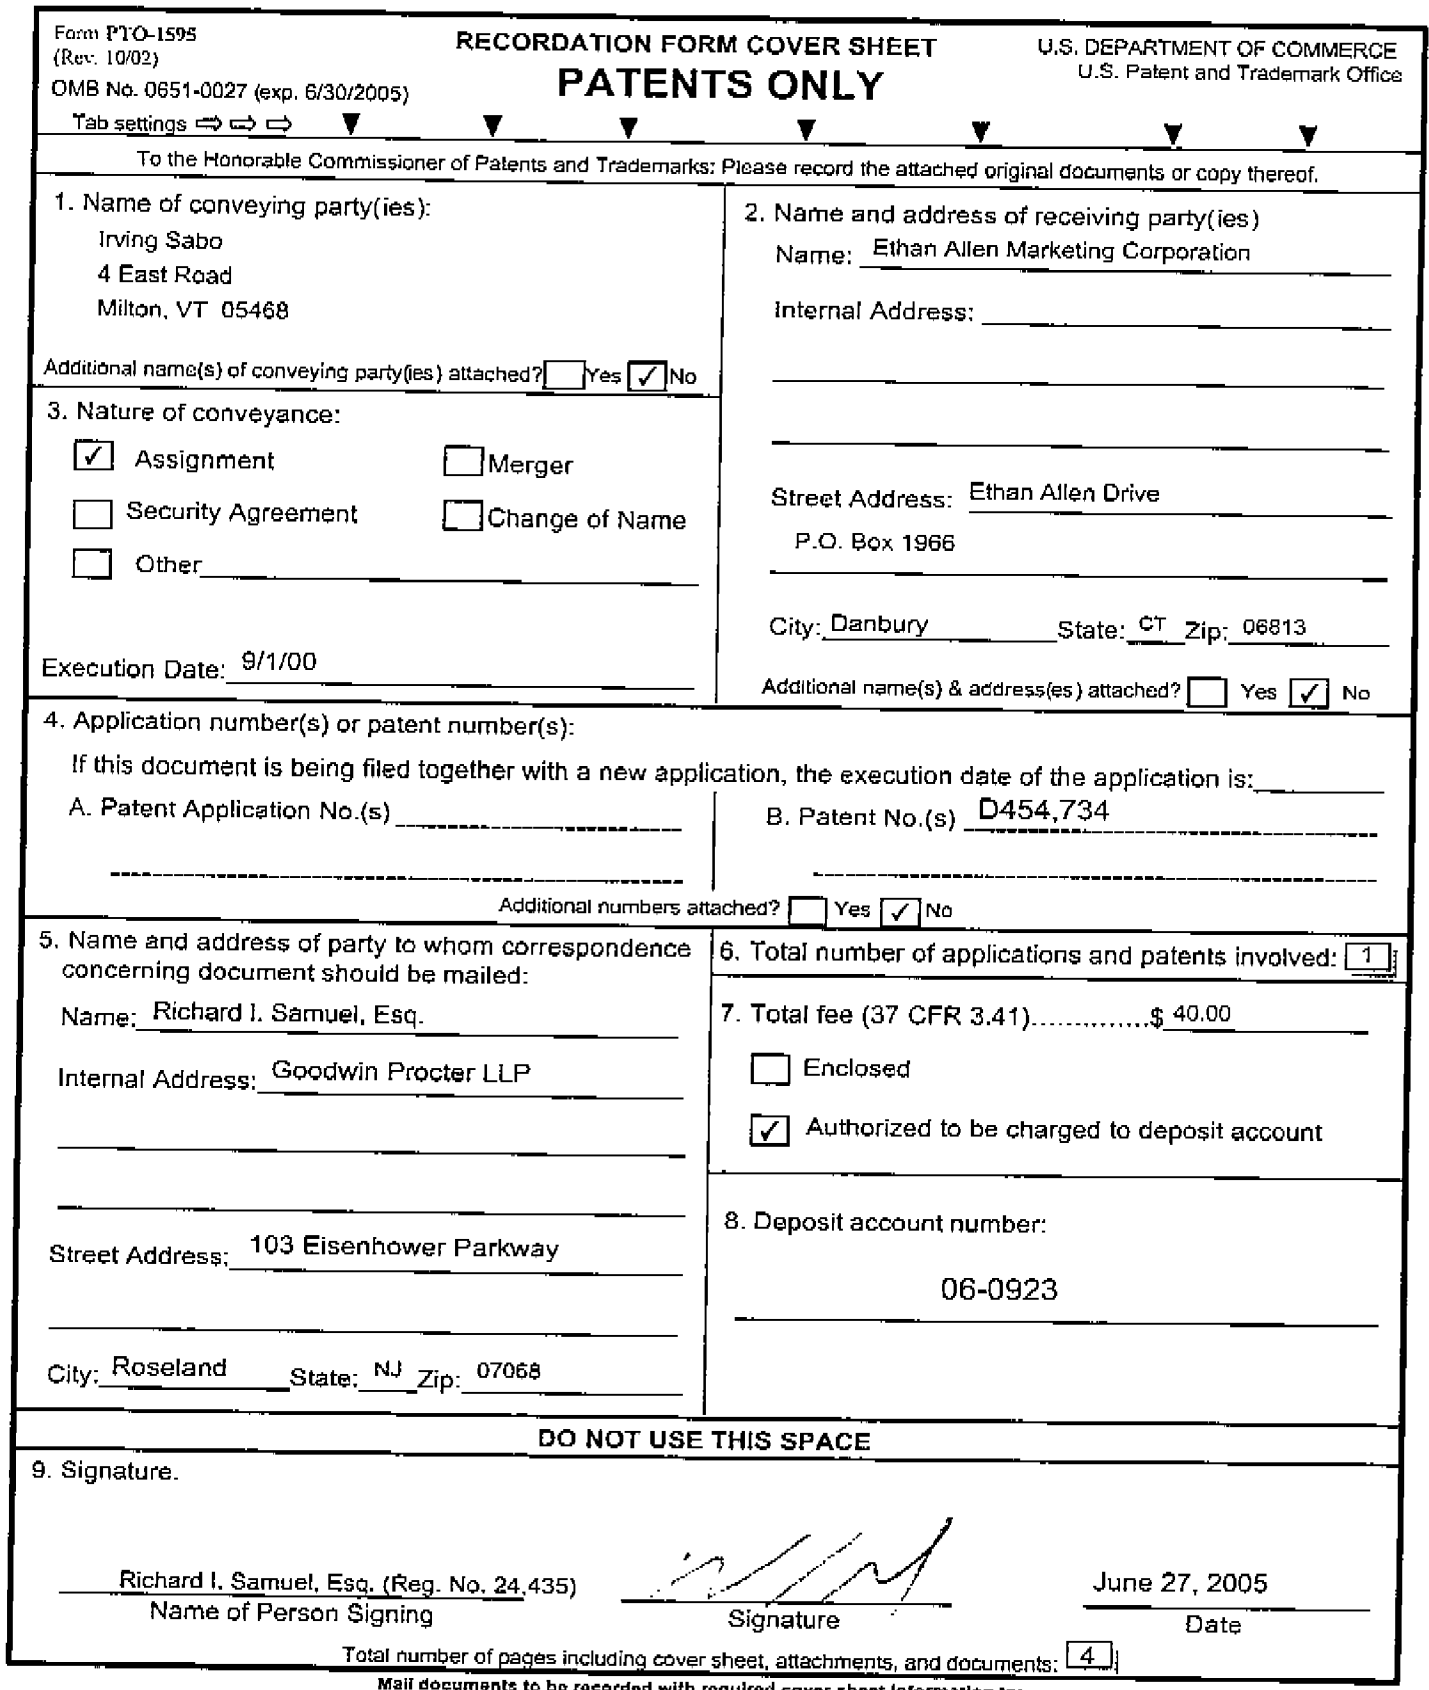 Form PTO-1595
(Rev. 10/02)
OMB No. 0651-0027 (exp. 6/30/2005)
Tab settings
RECORDATION FORM COVER SHEET
PATENTS ONLY
U.S. DEPARTMENT OF COMMERCE
U.S. Patent and Trademark Office
To the Honorable Commissioner of Patents and Trademarks: Please record the attached original documents or copy thereof.
1. Name of conveying party(ies):
Irving Sabo
4 East Road
Milton, VT 05468
Additional name(s) of conveying party(ies) attached? Yes ✓ No
2. Name and address of receiving party(ies)
Name: Ethan Allen Marketing Corporation
Internal Address:
Street Address: Ethan Allen Drive
P.O. Box 1966
City: Danbury State: CT Zip: 06813
Additional name(s) & address(es) attached? Yes ✓ No
3. Nature of conveyance:
✓ Assignment Merger
Security Agreement Change of Name
Other
Execution Date: 9/1/00
4. Application number(s) or patent number(s):
If this document is being filed together with a new application, the execution date of the application is:
A. Patent Application No.(s)
B. Patent No.(s) D454,734
Additional numbers attached? Yes ✓ No
5. Name and address of party to whom correspondence
concerning document should be mailed:
Name: Richard I. Samuel, Esq.
Internal Address: Goodwin Procter LLP
Street Address: 103 Eisenhower Parkway
City: Roseland State: NJ Zip: 07068
6. Total number of applications and patents involved: 1
7. Total fee (37 CFR 3.41)..............$ 40.00
Enclosed
✓ Authorized to be charged to deposit account
8. Deposit account number:
06-0923
DO NOT USE THIS SPACE
9. Signature.
Richard I. Samuel, Esq. (Reg. No. 24,435)
Name of Person Signing
Signature
June 27, 2005
Date
Total number of pages including cover sheet, attachments, and documents: 4
Mail documents to be recorded with required cover sheet information to: